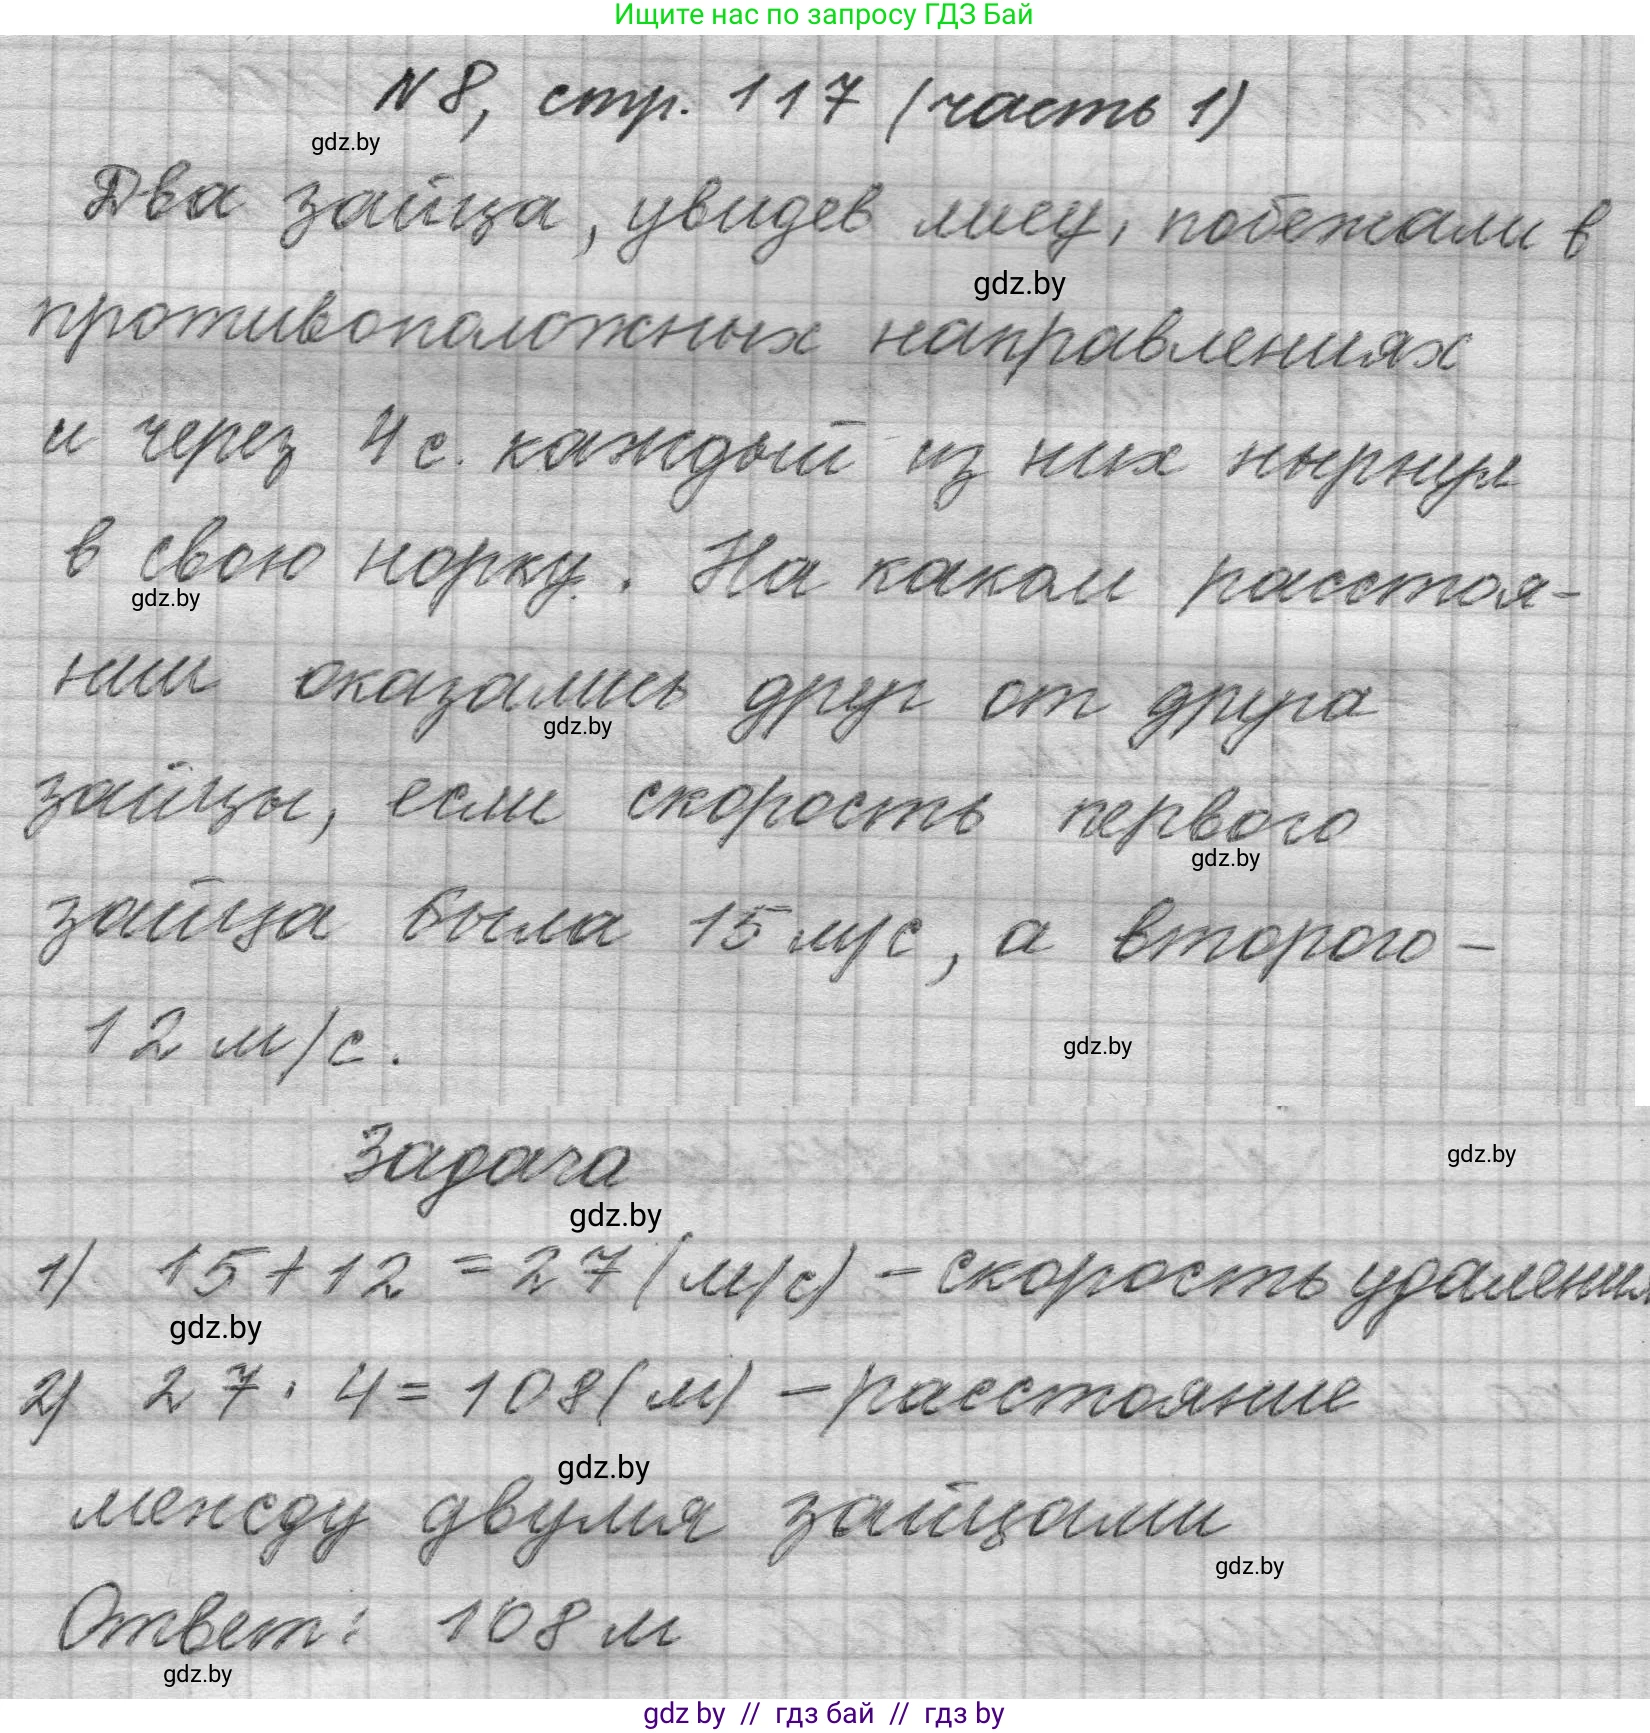 Ищите нас по запросу ГДЗ Бай
№8, стр. 117 (часть 1)
gdz.by
Два зайца, увидев лису, побежали в
gdz.by
противоположных направлениях
и через 4 с. каждый из них нырнул
в свою норку. На каком расстоя-
gdz.by
нии оказались друг от друга
gdz.by
зайцы, если скорость первого
gdz.by
зайца была 15 м/с, а второго -
12 м/с.
gdz.by
Задача
gdz.by
gdz.by
1) 15 + 12 = 27 (м/с) - скорость удаления
gdz.by
2) 27 · 4 = 108 (м) - расстояние
gdz.by
между двумя зайцами
gdz.by
Ответ: 108 м
gdz.by
gdz by // гдз бай // гдз by